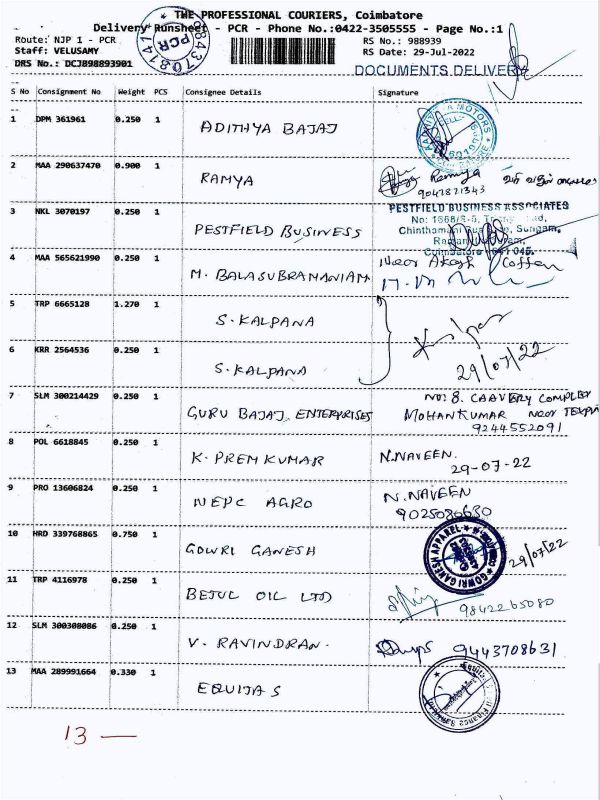 THE PROFESSIONAL COURIERS, Coimbatore
Delivery Runsheet - PCR - Phone No.:0422-3505555 - Page No.:1
Route: NJP 1 - PCR
RS No.: 988939
Staff: VELUSAMY
RS Date: 29-Jul-2022
DRS No.: DCJ898893901
PCR
DOCUMENTS DELIVERY
S No Consignment No Weight PCS Consignee Details Signature
1 DPM 361961 0.250 1 ADITHYA BAJAJ
2 MAA 290637470 0.900 1 RAMYA Ramya
9047821343
3 NKL 3070197 0.250 1 PESTFIELD BUSINESS
PESTFIELD BUSINESS ASSOCIATES
Sungam,
4 MAA 565621990 0.250 1 M. BALASUBRAMANIAM Near Akash Coffee
5 TRP 6665128 1.270 1 S. KALPANA
6 KRR 2564536 0.250 1 S. KALPANA 29/07/22
7 SLM 300214429 0.250 1 GURU BAJAJ ENTERPRISES
No: 8. CAAVERY COMPLEX
MOHANKUMAR near
9244552091
8 POL 6618845 0.250 1 K. PREM KUMAR N.NAVEEN.
29-07-22
9 PRO 13606824 0.250 1 NEPC AGRO N.NAVEEN
10 HRD 339768865 0.750 1 GOWRI GANESH
GOWRI GANESH APPAREL
29/07/22
11 TRP 4116978 0.250 1 BETUL OIL LTD 9842265080
12 SLM 300308086 0.250 1 V. RAVINDRAN. 9443708631
13 MAA 289991664 0.330 1 EQUITAS
13 —